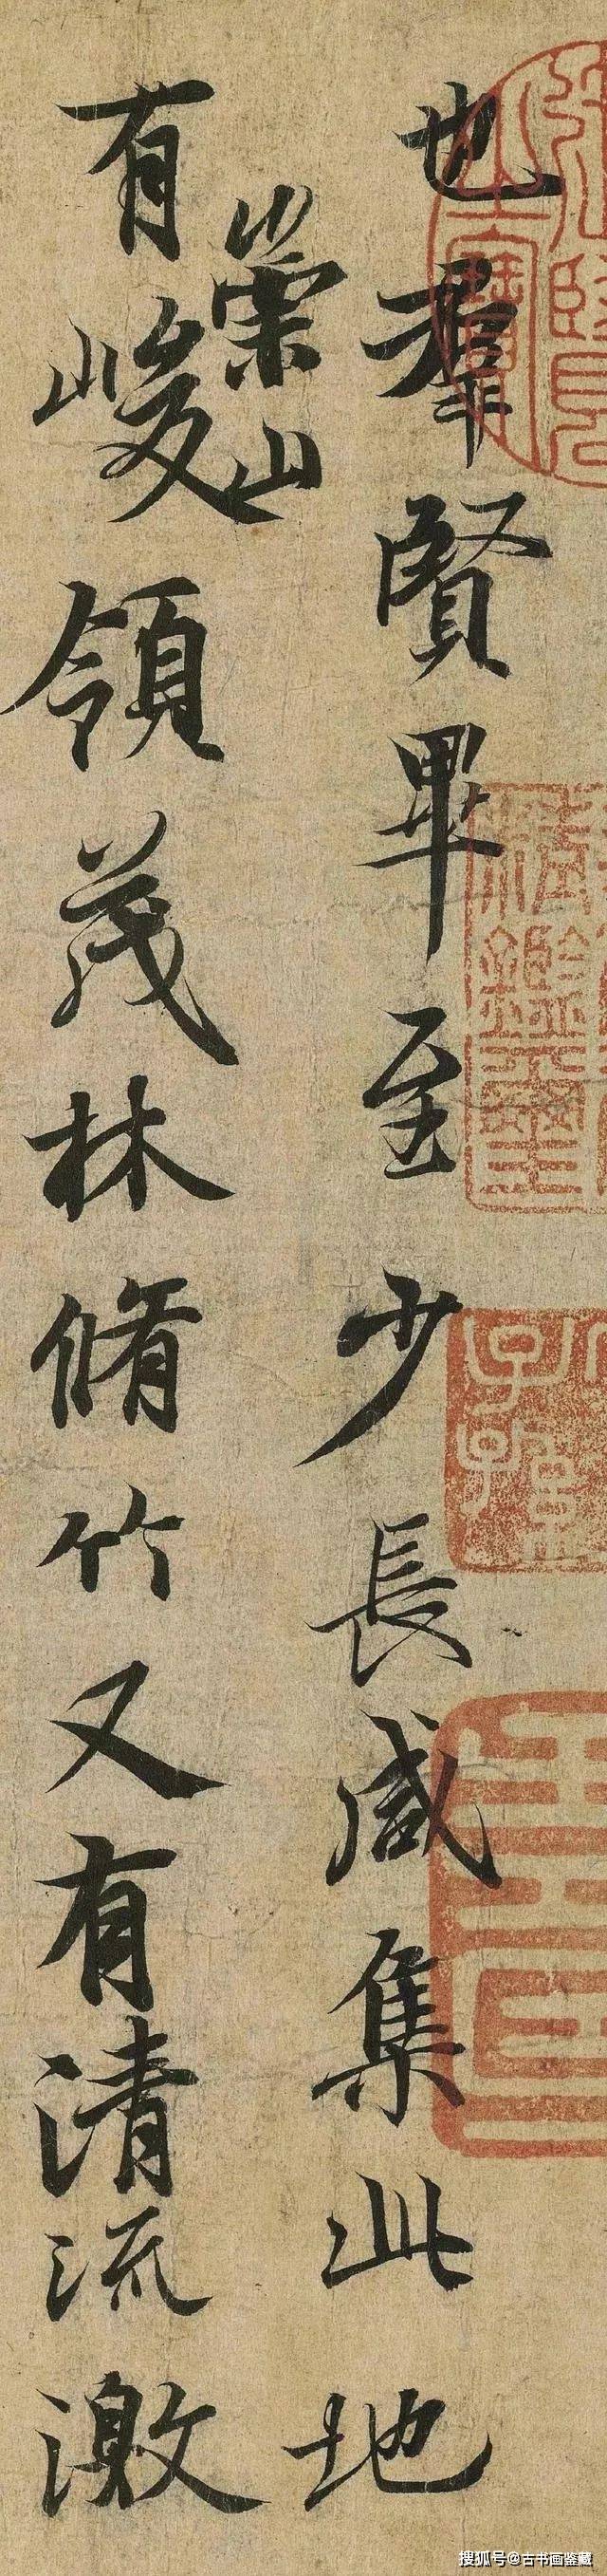 也羣賢畢至少長咸集此地
有崇山峻領茂林脩竹又有清流激
搜狐号@古书画鉴藏